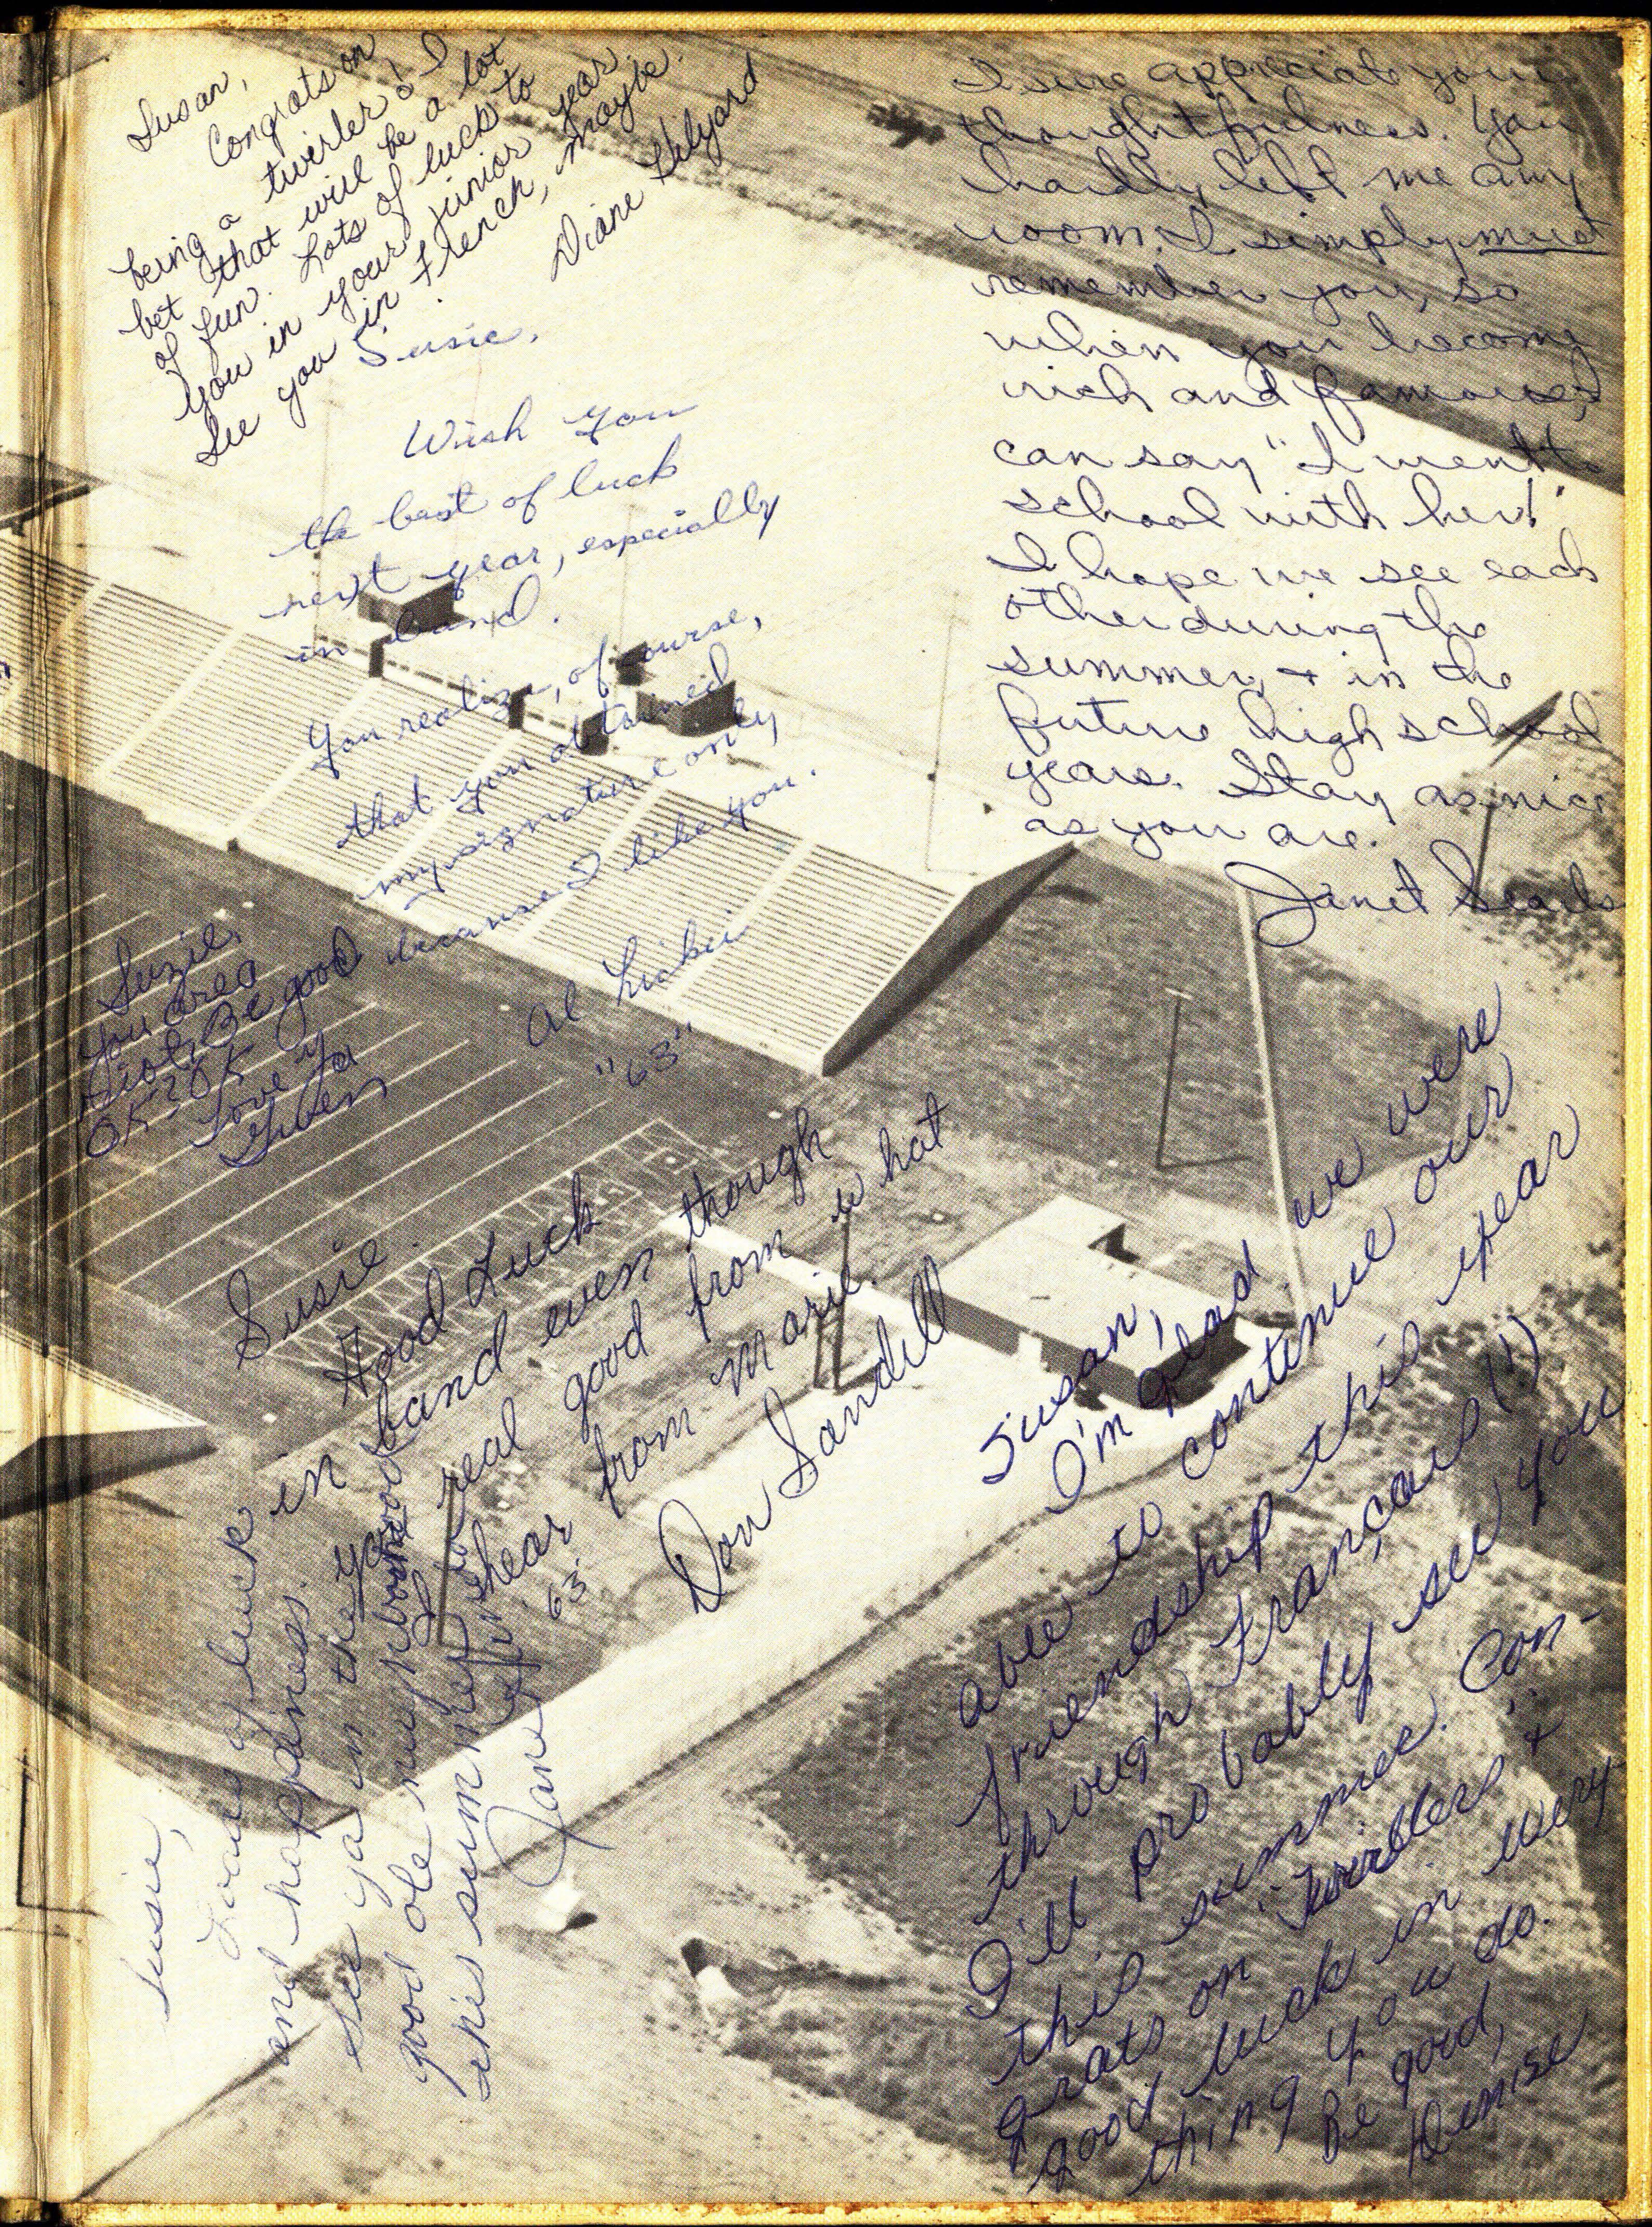 Susan,
Congrats on
being a twirler! I
bet that will be a lot
of fun. Lots of luck to
you in your junior year.
See you in French, maybe.
Diane Hilyard
I sure appreciate your
thoughtfulness. You
hardly left me any
room. I simply must
remember you, so
when you become
rich and famous I
can say "I went to
school with her!"
I hope we see each
other during the
summer, + in the
future high school
years. Stay as nice
as you are.
Janet Searls
Susie,
Wish you
the best of luck
next year, especially
in band.
You realize, of course,
that you obtained
my signature only
because I like you.
Al
"63"
Suzie,
You are a
riot. Be good
OK?OK
Love Ya
Susie.
Good Luck
in band even though
real good from what
hear from Marie.
'63'
Don Sandell
Susan,
I'm glad we were
able to continue our
friendship this year
through Français (!)
I'll probably see you
this summer. Con-
grats on "twirblers" +
good luck in every-
thing you do.
Be good,
Denise
Susie,
Loads of luck
and happiness.
See ya in the
good ole
this summer
Jane